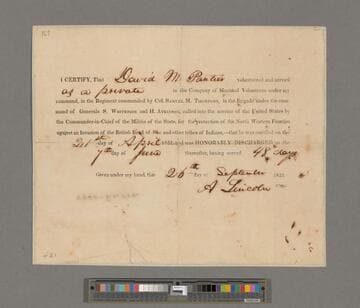 I CERTIFY, That David M. Pantier volunteered and served
as a private in the Company of Mounted Volunteers under my
command, in the Regiment commanded by Col. SAMUEL M. THOMPSON, in the Brigade under the com-
mand of Generals S. WHITESIDE and H. ATKINSON, called into the service of the United States by
the Commander-in-Chief of the Militia of the State, for the protection of the North Western Frontier
against an Invasion of the British Band of Sac and other tribes of Indians,—that he was enrolled on the
day of April 1832, and was HONORABLY DISCHARGED on the
7th day of June thereafter, having served 48 days
Given under my hand, this 26th day of September 1832
A. Lincoln